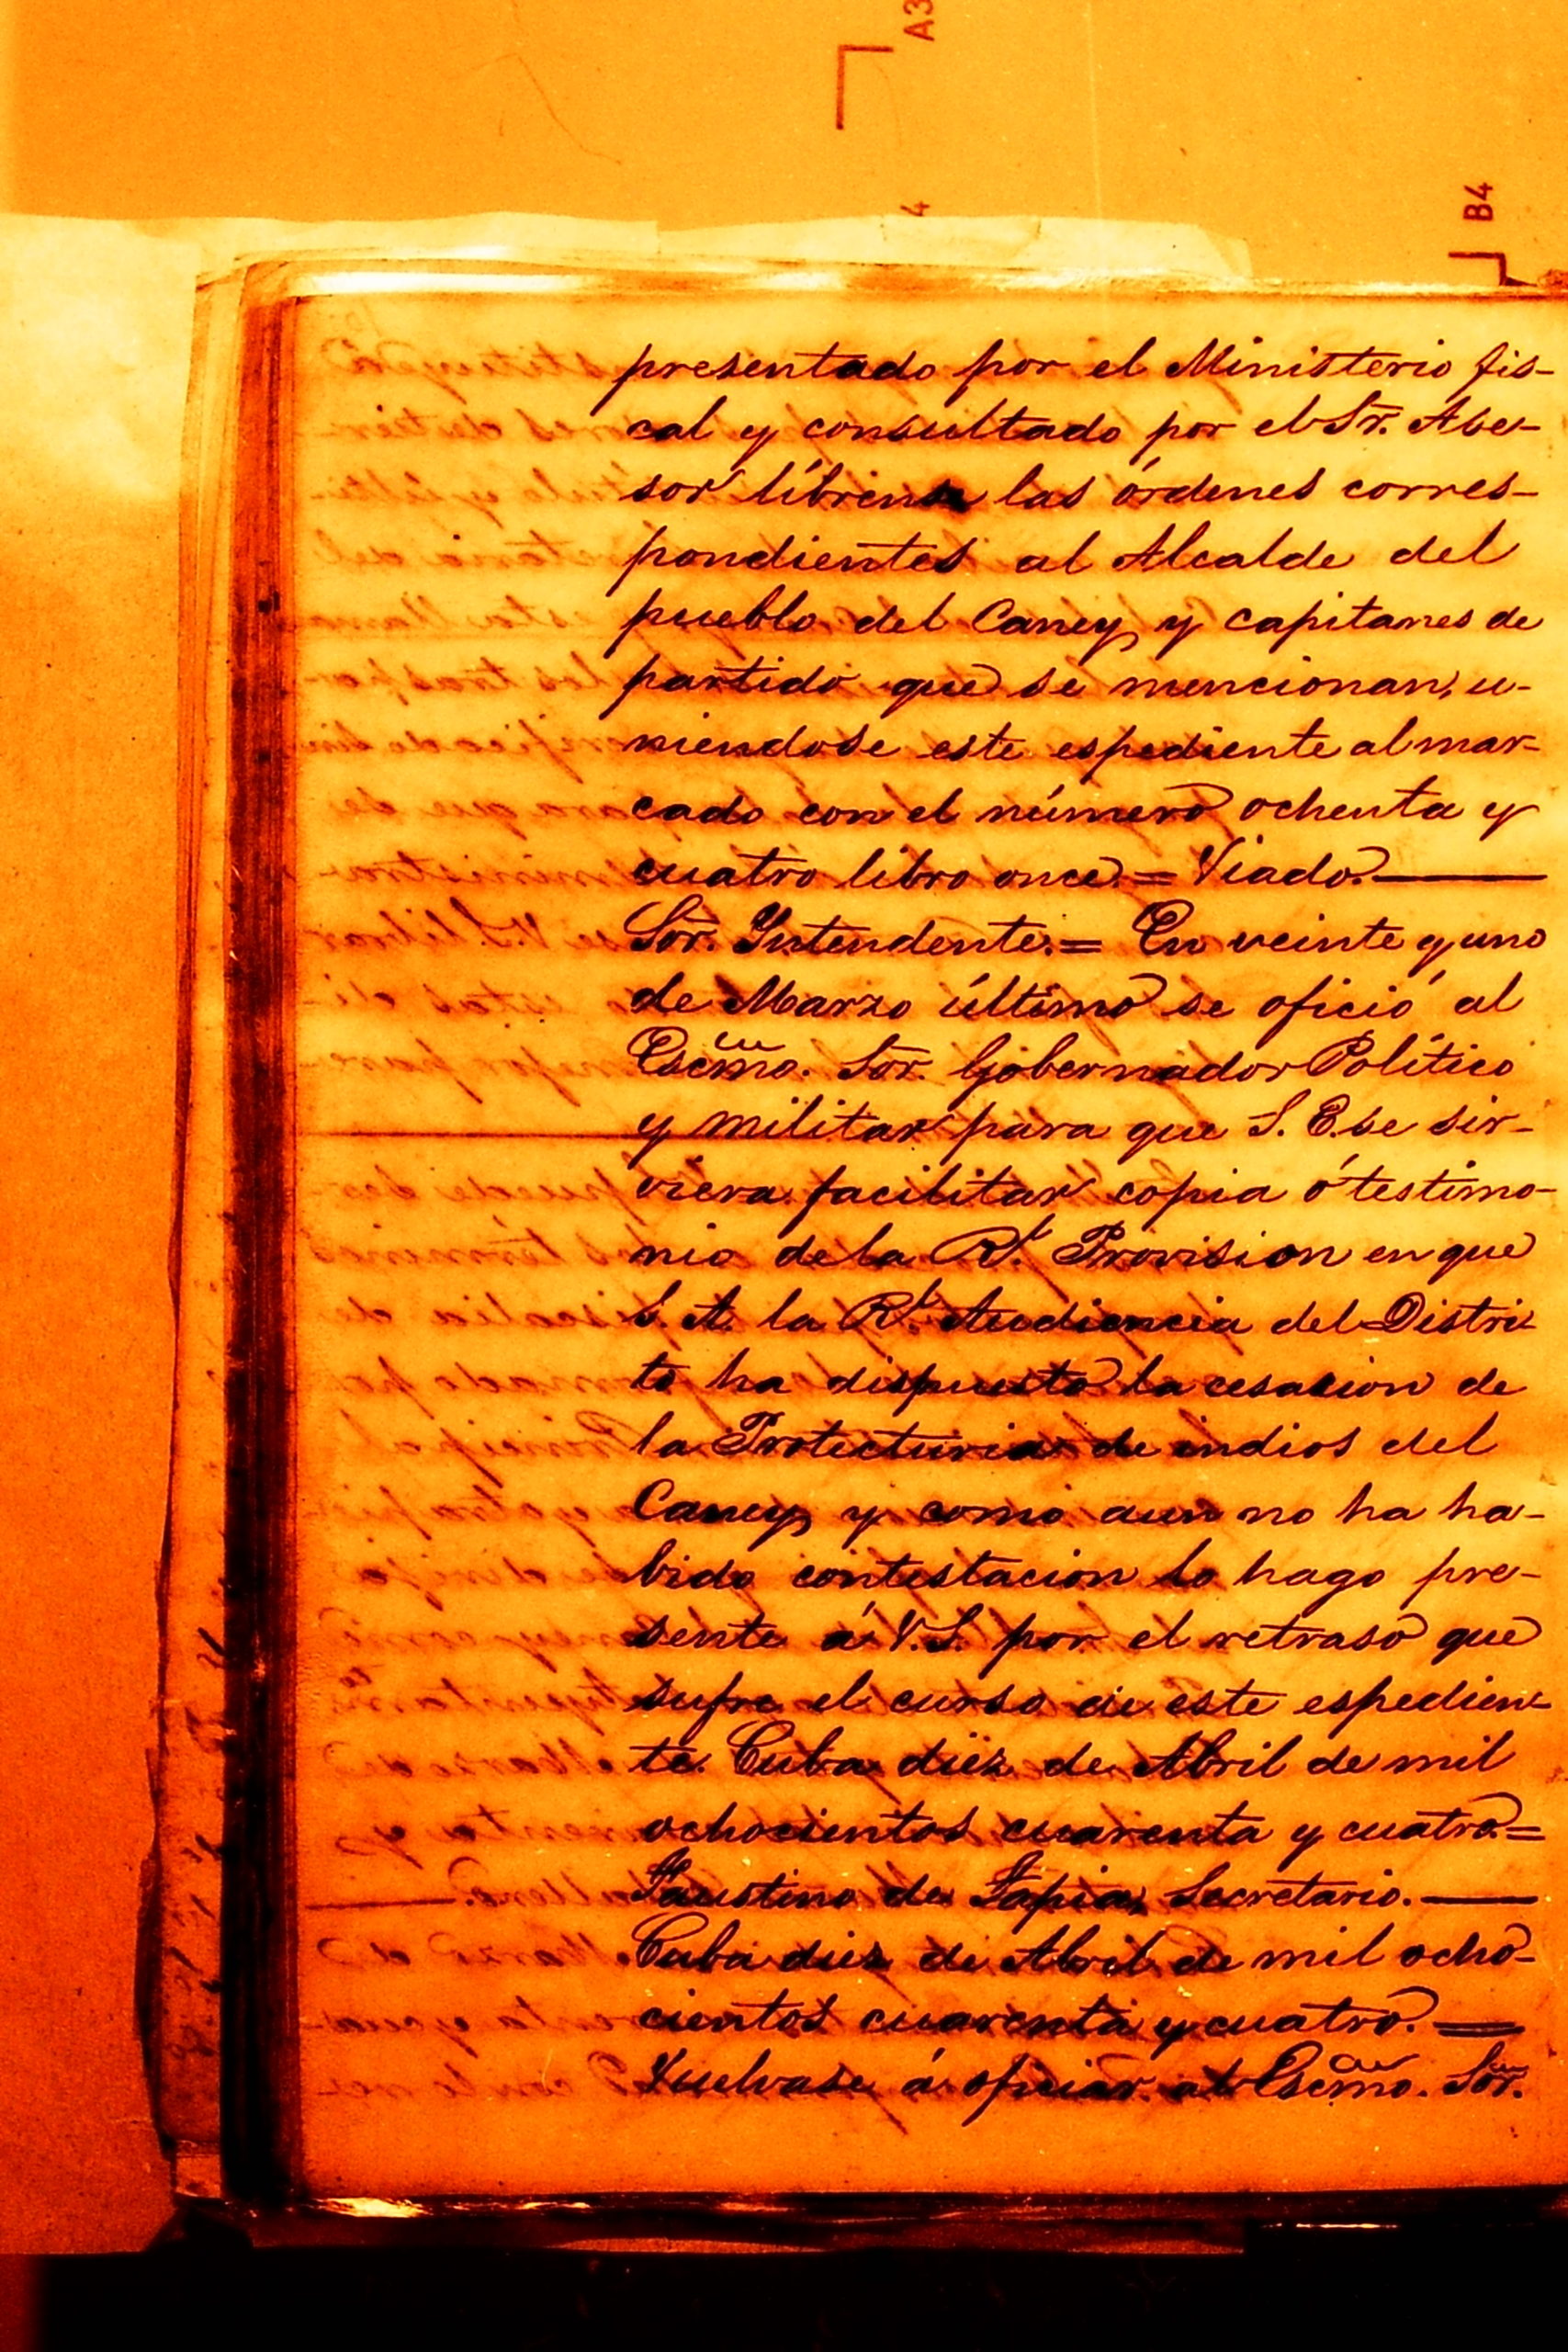 A3
4
B4
presentado por el Ministerio fis-
cal y consultado por el Sr. Ase-
sor líbrense las órdenes corres-
pondientes al Alcalde del
pueblo del Caney y capitanes de
partido que se mencionan, u-
niendose este espediente al mar-
cado con el número ochenta y
cuatro libro once. = Viado. —
Sor. Yntendente. = En veinte y uno
de Marzo último se ofició al
Escmo. Sor. Gobernador Político
y militar para que S. E. se sir-
viera facilitar copia ó testimo-
nio de la Rl. Provision en que
S. A. la Rl. Audiencia del Distri-
to ha dispuesto la cesacion de
la Protecturia de indios del
Caney, y como aun no ha ha-
bido contestacion lo hago pre-
sente á V. S. por el retraso que
sufre el curso de este espedien-
te. Cuba diez de Abril de mil
ochocientos cuarenta y cuatro =
Faustino de Tapia, Secretario. —
Cuba diez de Abril de mil ocho-
cientos cuarenta y cuatro. =
Vuelvase á oficiar al Escmo. Sor.